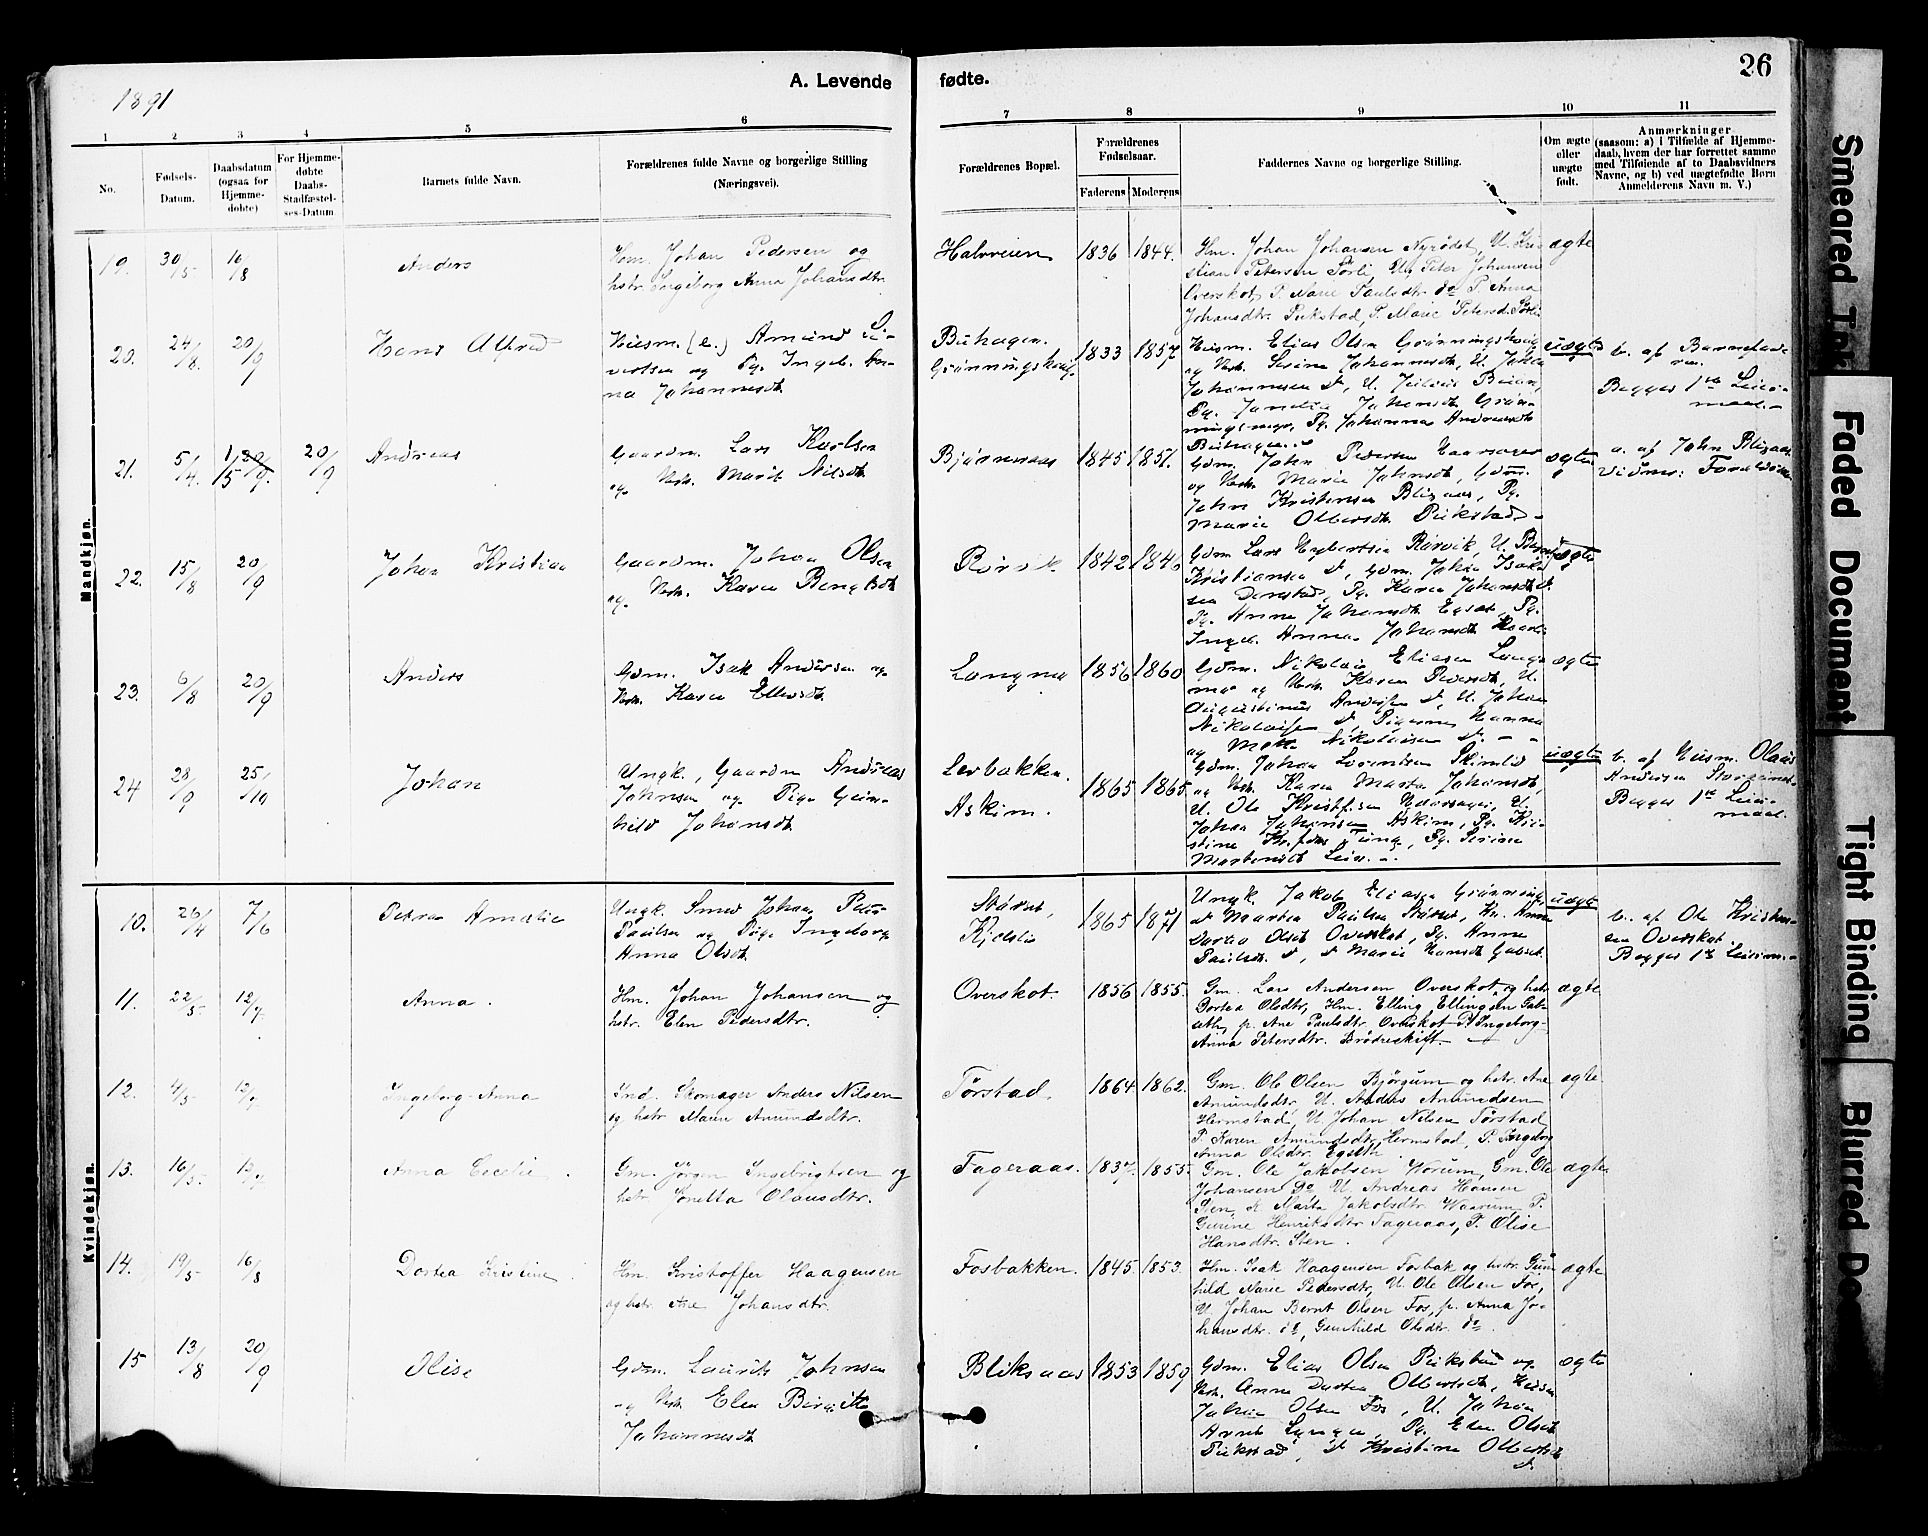 1891
A. Levende fødte.
26
1 2 3 4 5 6 7 8 9 10 11
No.
Fødsels-
Datum.
Daabsdatum
(ogsaa for
Hjemme-
døbte)
For Hjemme-
døbte
Daabs-
Stadfæstel-
ses-Datum
Barnets fulde Navn.
Forældrenes fulde Navne og borgerlige Stilling
(Næringsvei).
Forældrenes Bopæl.
Forældrenes
Fødselsaar.
Faderens Moderens
Faddernes Navne og borgerlige Stilling.
Om ægte
eller
uægte
født.
Anmærkninger
(saasom: a) i Tilfælde af Hjemme-
daab, hvem der har forrettet samme
med Tilføiende af to Daabsvidners
Navne, og b) ved uægtefødte Børn
Anmelderens Navn m. V.)
Mandkjøn.
19. 30/5 16/8
Anders
Hm. Johan Pedersen og
hstr. Ingeborg Anna Johansdtr.
Halvveien 1836 1844.
Hm. Johan Johansen Nyrødet, U. Kri-
stian Petersen Sørli, U. Peter Johansen
Overskot, P. Marie Paulsdtr. do P. Anna
Johansdtr. Pukstad, P. Marie Petersd. Sørli
ægte
20. 24/8. 20/9
Hans Alfred
Husm. (e.) Amund Si-
vertsen og Pg. Ingeb. An-
na Johannesdt.
Buhagen.
Grønningshaug. 1833 1857
Husm. Elias Olsen Grønningshaug
og Hstr. Serine Johannesdt., U. Johan
Johannesen dº, U. Julius Beian,
uægte
b. af Barnefade-
ren.
Begges 1ste Leier-
maal.
21. 5/4. 1/5 20/9. 20/9
Andreas
Gaardm. Lars Karlsen
og Hstr. Marit Nilsdt.
Bjørnenaas 1845 1851.
Buhagen.
Gdm. John Pedersen
og Hstr. Marie Johnsdt., Gdm.
John Kristensen Bliksaas, Pg.
Marie Olbersdt. Pukstad
ægte
a. af John Bliksaas
Vidner: Forældrene
22. 15/8 20/9
Johan Kristian
Gaardm. Johan Olsen
og Hstr. Karen Bengtsdt.
Rørvik 1842 1846
Gdm. Lars Engbertsen Rørvik, U. Bernt
Kristiansen dº, Gdm. Johan Isak-
sen Denstad, Pg. Karen Johansdt. dº
Pg. Anne Johansdt. Egset, Pg.
Ingeb. Anna Johansdt.
ægte
23. 6/8 20/9
Anders
Gdm. Isak Andersen og
Hstr. Karen Ellevsdt.
Langmo 1856 1860
Gdm. Nikolai Eliasen Lang-
mo og Hstr. Karen Pedersdt., U.
Augustinus Andersen dº, U. Johan
Nikolaisen dº, Pigerne Hanna
og Mette Nikolaisen dº.
ægte
24 28/9 25/10
Johan
Ungk., Gaardm. Andreas
Johnsen og Pige Gun-
hild Johansdt.
Levbakken.
Askim. 1865 1865.
Gdm. Johan Lorentsen
og Hstr. Karen Marta Johansdt.,
U. Ole Kristofsen U.
Johan Johansen Askim, Pg. Kri-
stine Kristofersdt. Tung, Pg. Serine
Mortensdt.
uægte
b. af Husm. Olaus
Andersen
Begges 1ste Leier-
maal.
Kvindekjøn.
10. 26/4 7/6
Petra Amalie
Ungk. Smed Johan Peter
Paulsen og Pige Ingeborg
Anna Olsdt.
Størset,
Kjelslie 1865 1871
Ungk. Jakob Eliasen Grønning,
dº Martin Paulsen Størset, Kn. Anne
Dortea Olsdt. Overskot, Pg. Anne
Paulsdt. dº, dº Marie Hansdt.
uægte
b. af Ole Kristen-
sen Overskot.
Begges 1ste Leierm.
11. 22/5 12/7
Anna.
Hm. Johan Johansen og
hstr. Elen Pedersdtr.
Overskot. 1856 1855.
Gm. Lars Andersen Overskot og hstr.
Dortea Olsdtr., Hm. Elling Ellingsen Gab-
seth, p. Ane Paulsdtr. Overskot P. Ingeborg-
Anna Petersdtr. Brødreskift.
ægte
12. 4/5 12/7
Ingeborg-Anna
Ind. Skomager Anders Nilsen
og hstr. Maren Amundsdtr.
Tørstad. 1864 1862.
Gm. Ole Olsen Bjørgum og hstr. Ane
Amundsdtr. U. Anders Amundsen
Hermstad, U. Johan Nilsen Tørstad
P. Karen Amundsdtr. Hermstad, P. Ingeborg
Anna Olsdtr. Egseth.
ægte.
13. 16/5. 12/7
Anna Cecelie.
Gm. Jørgen Ingebrigtsen og
hstr. Jonetta Olausdtr.
Fageraas. 1837. 1855.
Gm. Ole Jakobsen Worum, Gm. Ole
Johansen Do U. Andreas Hansen
Marta Jakobsdtr. Waarum P.
Gurine Henriksdtr. Fageraas, P. Olise
Hansdtr. Sten.
ægte
14. 19/5 16/8
Dortea Kristine.
Hm. Kristoffer Haagensen
og hstr. Ane Johansdtr.
Fosbakken. 1845 1853.
Hm. Isak Haagensen Fosbak og hstr. Gun-
hild Marie Pedersdtr, U. Ole Olsen Fos,
U. Johan Bernt Olsen Fos, p. Anna Jo-
hansdtr. do, Gunhild Olsdtr. do.
ægte
15 13/8 20/9
Olise
Gdm. Laurits Johnsen
og Hstr. Elen Birgitte
Johannesdt.
Bliksaas 1853 1859
Gdm. Elias Olsen Pukstad og
Hstr. Anne Dortea Olbertsdt., Husm.
Johan Olsen Fos, U. Johan
Arnt Pg. Elen Olsdt.
Pukstad, dº Kristine Olbertsdt.
dº.
ægte
Smeared
Faded Document
Tight Binding
Blurred Do